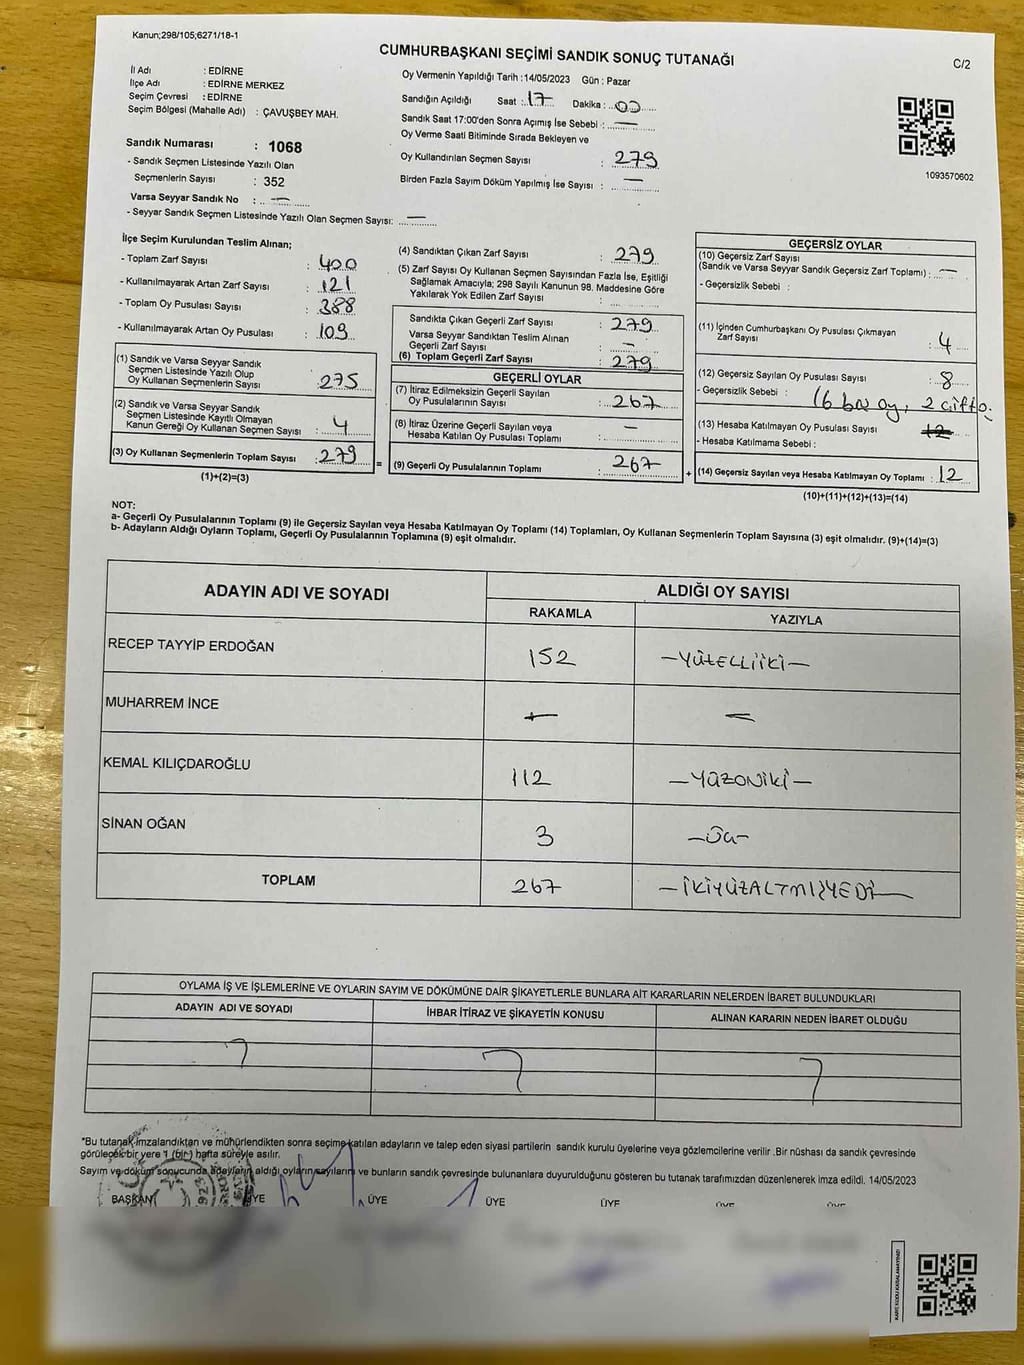 Kanun;298/105;6271/18-1
CUMHURBAŞKANI SEÇİMİ SANDIK SONUÇ TUTANAĞI
C/2
İl Adı : EDİRNE
İlçe Adı : EDİRNE MERKEZ
Seçim Çevresi : EDİRNE
Seçim Bölgesi (Mahalle Adı) : ÇAVUŞBEY MAH.
Sandık Numarası : 1068
- Sandık Seçmen Listesinde Yazılı Olan
Seçmenlerin Sayısı : 352
Varsa Seyyar Sandık No : —
- Seyyar Sandık Seçmen Listesinde Yazılı Olan Seçmen Sayısı: —
Oy Vermenin Yapıldığı Tarih :14/05/2023 Gün : Pazar
Sandığın Açıldığı Saat : 17 Dakika : 00
Sandık Saat 17:00'den Sonra Açımış İse Sebebi : —
Oy Verme Saati Bitiminde Sırada Bekleyen ve
Oy Kullandırılan Seçmen Sayısı : 279
Birden Fazla Sayım Döküm Yapılmış İse Sayısı : —
1093570602
İlçe Seçim Kurulundan Teslim Alınan;
- Toplam Zarf Sayısı : 400
- Kullanılmayarak Artan Zarf Sayısı : 121
- Toplam Oy Pusulası Sayısı : 388
- Kullanılmayarak Artan Oy Pusulası : 109
(1) Sandık ve Varsa Seyyar Sandık
Seçmen Listesinde Yazılı Olup
Oy Kullanan Seçmenlerin Sayısı : 275
(2) Sandık ve Varsa Seyyar Sandık
Seçmen Listesinde Kayıtlı Olmayan
Kanun Gereği Oy Kullanan Seçmen Sayısı : 4
(3) Oy Kullanan Seçmenlerin Toplam Sayısı : 279
(1)+(2)=(3)
(4) Sandıktan Çıkan Zarf Sayısı : 279
(5) Zarf Sayısı Oy Kullanan Seçmen Sayısından Fazla İse, Eşitliği
Sağlamak Amacıyla; 298 Sayılı Kanunun 98. Maddesine Göre
Yakılarak Yok Edilen Zarf Sayısı :
Sandıkta Çıkan Geçerli Zarf Sayısı : 279
Varsa Seyyar Sandıktan Teslim Alınan
Geçerli Zarf Sayısı : —
(6) Toplam Geçerli Zarf Sayısı : 279
GEÇERLİ OYLAR
(7) İtiraz Edilmeksizin Geçerli Sayılan
Oy Pusulalarının Sayısı : 267
(8) İtiraz Üzerine Geçerli Sayılan veya
Hesaba Katılan Oy Pusulası Toplamı : —
= (9) Geçerli Oy Pusulalarının Toplamı : 267 +
GEÇERSİZ OYLAR
(10) Geçersiz Zarf Sayısı
(Sandık ve Varsa Seyyar Sandık Geçersiz Zarf Toplamı) : —
- Geçersizlik Sebebi :
(11) İçinden Cumhurbaşkanı Oy Pusulası Çıkmayan
Zarf Sayısı : 4
(12) Geçersiz Sayılan Oy Pusulası Sayısı : 8
- Geçersizlik Sebebi : (6 boş oy, 2 çift oy
(13) Hesaba Katılmayan Oy Pusulası Sayısı : 12
- Hesaba Katılmama Sebebi :
(14) Geçersiz Sayılan veya Hesaba Katılmayan Oy Toplamı : 12
(10)+(11)+(12)+(13)=(14)
NOT:
a- Geçerli Oy Pusulalarının Toplamı (9) ile Geçersiz Sayılan veya Hesaba Katılmayan Oy Toplamı (14) Toplamları, Oy Kullanan Seçmenlerin Toplam Sayısına (3) eşit olmalıdır. (9)+(14)=(3)
b- Adayların Aldığı Oyların Toplamı, Geçerli Oy Pusulalarının Toplamına (9) eşit olmalıdır.
ADAYIN ADI VE SOYADI
ALDIĞI OY SAYISI
RAKAMLA YAZIYLA
RECEP TAYYİP ERDOĞAN 152 —YÜZELLİİKİ—
MUHARREM İNCE — —
KEMAL KILIÇDAROĞLU 112 —YÜZONİKİ—
SİNAN OĞAN 3 —ÜÇ—
TOPLAM 267 —İKİYÜZALTMIŞYEDİ—
OYLAMA İŞ VE İŞLEMLERİNE VE OYLARIN SAYIM VE DÖKÜMÜNE DAİR ŞİKAYETLERLE BUNLARA AİT KARARLARIN NELERDEN İBARET BULUNDUKLARI
ADAYIN ADI VE SOYADI İHBAR İTİRAZ VE ŞİKAYETİN KONUSU ALINAN KARARIN NEDEN İBARET OLDUĞU
*Bu tutanak imzalandıktan ve mühürlendikten sonra seçime katılan adayların ve talep eden siyasi partilerin sandık kurulu üyelerine veya gözlemcilerine verilir .Bir nüshası da sandık çevresinde
görülecek bir yere 1 (bir) hafta süreyle asılır.
Sayım ve döküm sonucunda adayların aldığı oyların sayılarını ve bunların sandık çevresinde bulunanlara duyurulduğunu gösteren bu tutanak tarafımızdan düzenlenerek imza edildi. 14/05/2023
BAŞKAN ÜYE ÜYE ÜYE ÜYE ÜYE ÜYE